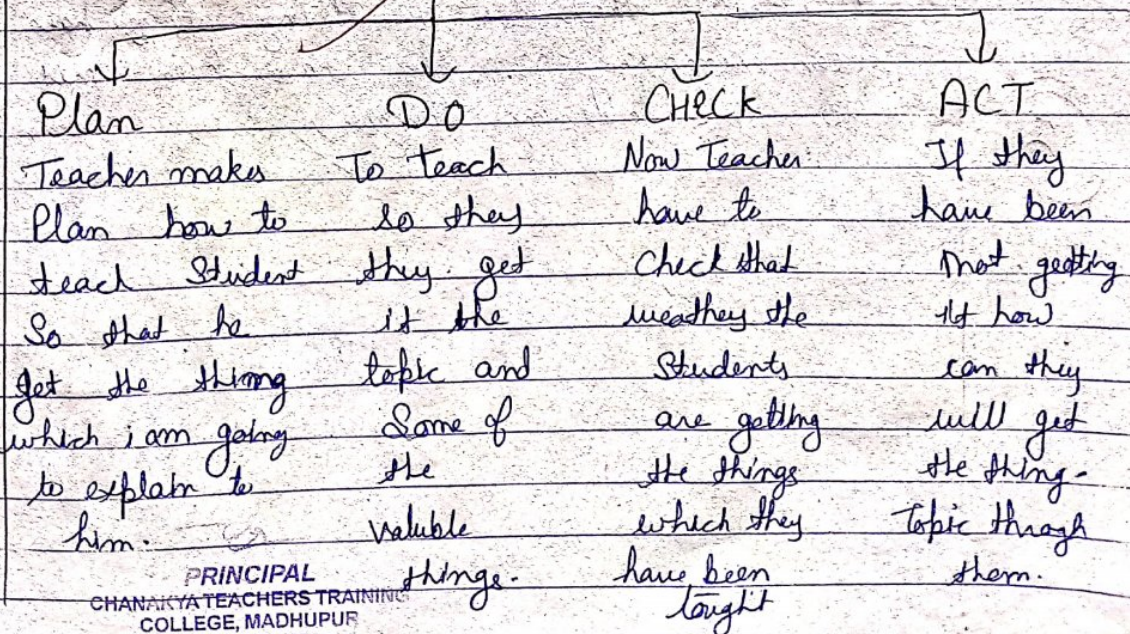 Plan
Teacher makes
Plan how to
teach Student
So that he
get the thimng
which i am going
to explain to
him.
DO
To teach
so they
they get
it the
topic and
Some of
the
valuble
things.
CHeCK
Now Teacher
have to
Check that
weathey the
Students
are getting
the things
which they
have been
tought
ACT
If they
have been
not geotting
it how
can they
will get
the thing-
Topic throgh
them.
PRINCIPAL
CHANAKYA TEACHERS TRAINING
COLLEGE, MADHUPUR